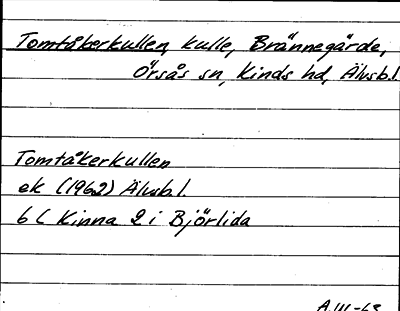 Tomtåkerkullen, kulle, Brännegärde,
Örsås sn, Kinds hd, Älvsb.l.
Tomtåkerkullen
ek (1962) Älvsb.l.
6 C Kinna 2 i Björlida